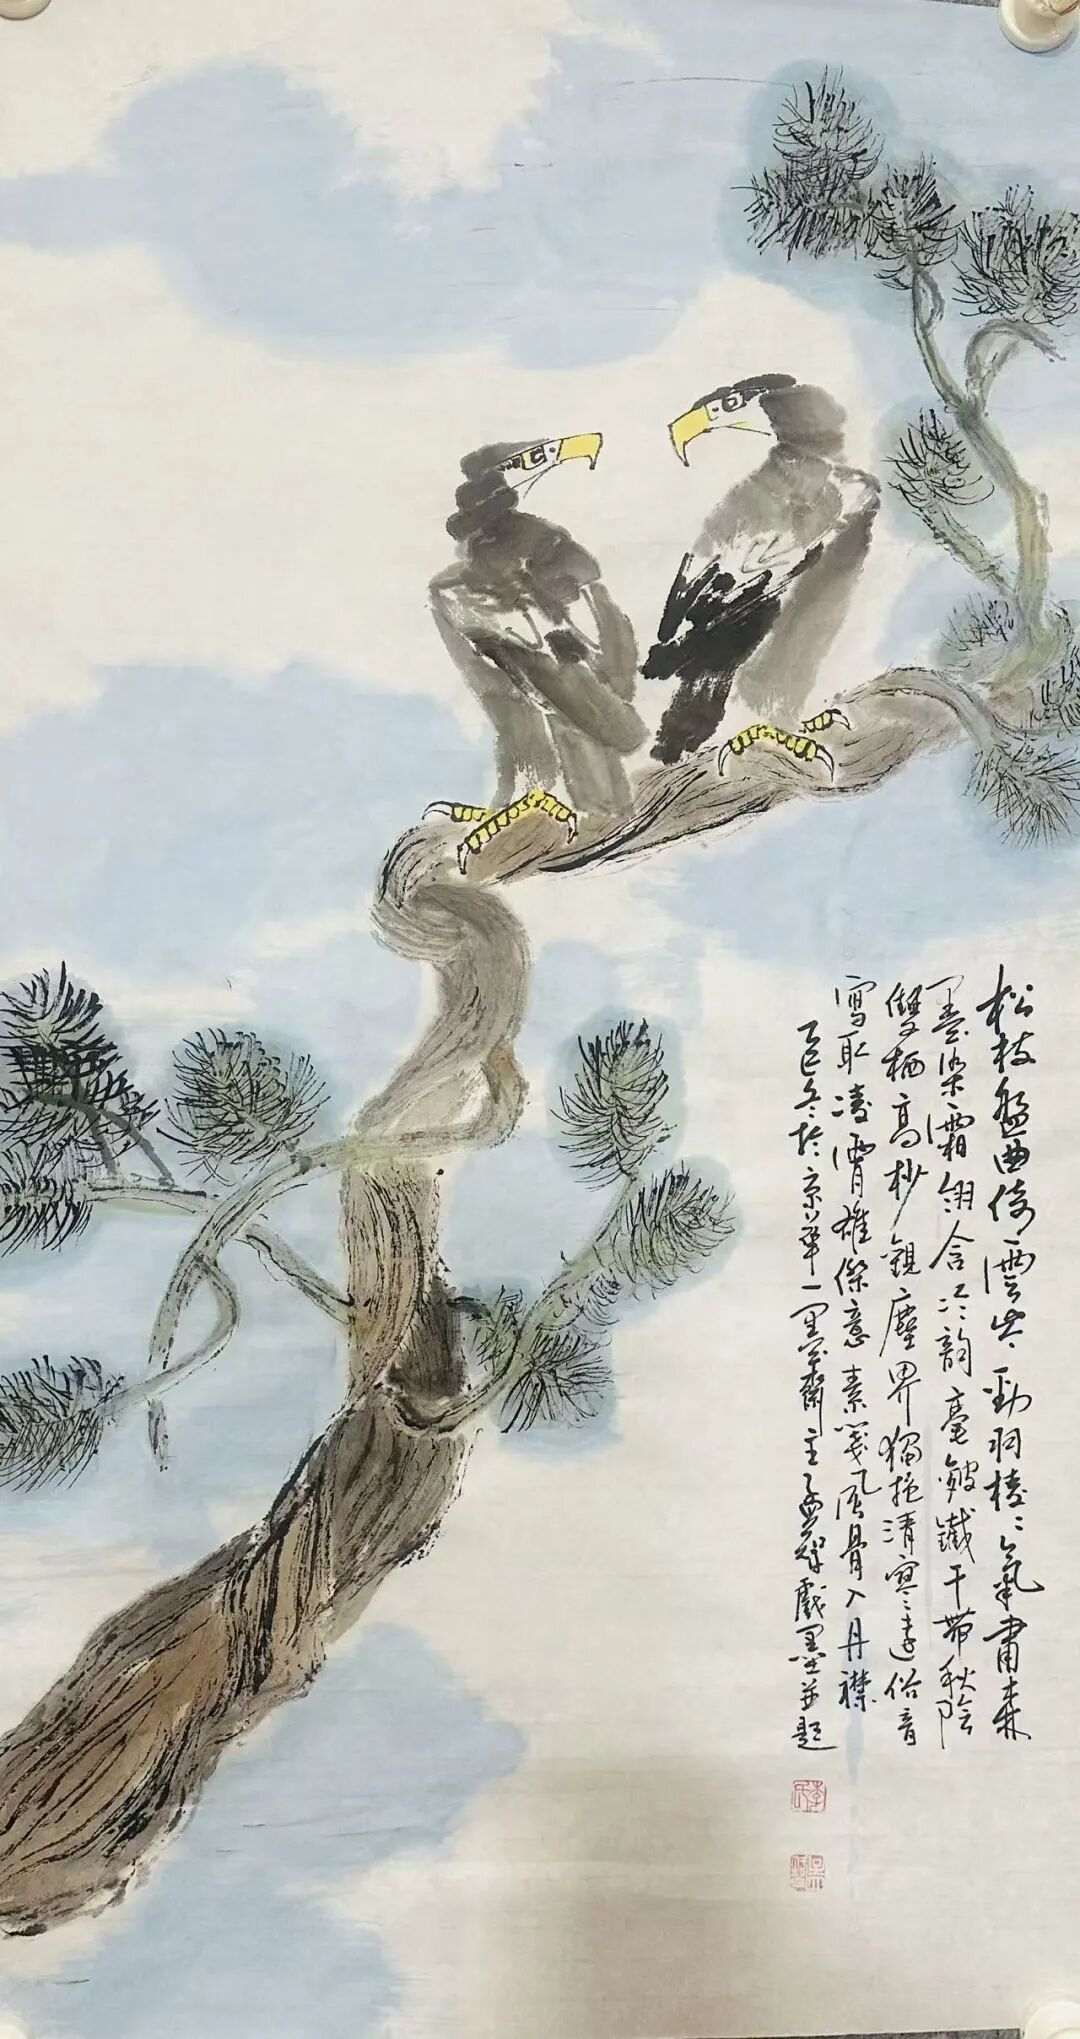 松枝盤曲倚雲岑勁羽棱〻氣肅森
墨染霜翎含冷韵毫皴鐵干帶秋陰
雙栖高杪觀塵界獨抱清寒遠俗音
寫取凌霄雄傑意素箋風骨入丹襟
乙巳冬於京華一墨齋主孟輝戲墨並題